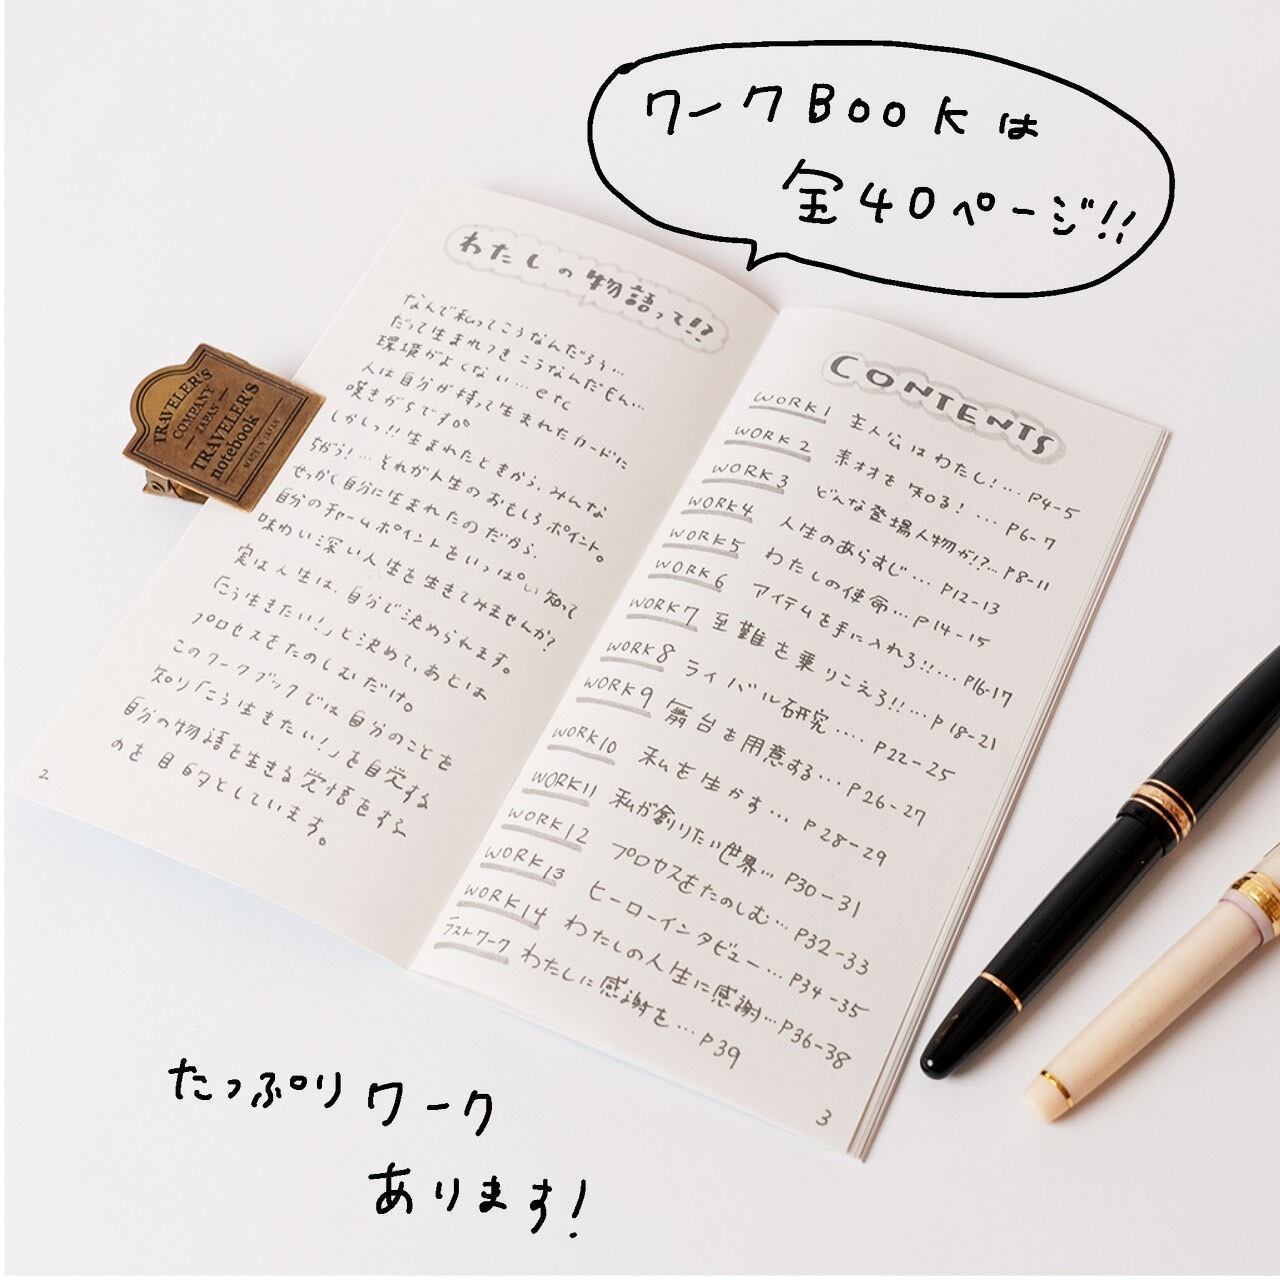 ワークBOOKは
全40ページ!!
わたしの物語って!?
なんで私ってこうなんだろう…
だって生まれつきこうなんだもん…
環境がよくない…etc
人は自分が持って生まれたカードに
嘆きがちです。
しかしっ!!生まれたときから、みんな
ちがう!…それが人生のおもしろポイント。
せっかく自分に生まれたのだから、
自分のチャームポイントをいっぱい知って
味わい深い人生を生きてみませんか?
実は人生は、自分で決められます。
「こう生きたい!」と決めて、あとは
プロセスをたのしむだけ。
このワークブックでは自分のことを
知り「こう生きたい!」を自覚する
自分の物語を生きる覚悟をする
のを目的としています。
2
TRAVELER'S
COMPANY
JAPAN
TRAVELER'S
notebook
MADE IN JAPAN
CONTENTS
WORK1 主人公はわたし!…P4-5
WORK2 素材を知る!…P6-7
WORK3 どんな登場人物が!?…P8-11
WORK4 人生のあらすじ…P12-13
WORK5 わたしの使命…P14-15
WORK6 アイテムを手に入れろ!!…P16-17
WORK7 至難を乗りこえろ!!…P18-21
WORK8 ライバル研究……P22-25
WORK9 舞台を用意する…P26-27
WORK10 私を生かす…P28-29
WORK11 私が創りたい世界…P30-31
WORK12 プロセスをたのしむ…P32-33
WORK13 ヒーローインタビュー…P34-35
WORK14 わたしの人生に感謝…P36-38
ラストワーク わたしに感謝を…P39
3
たっぷりワーク
あります!